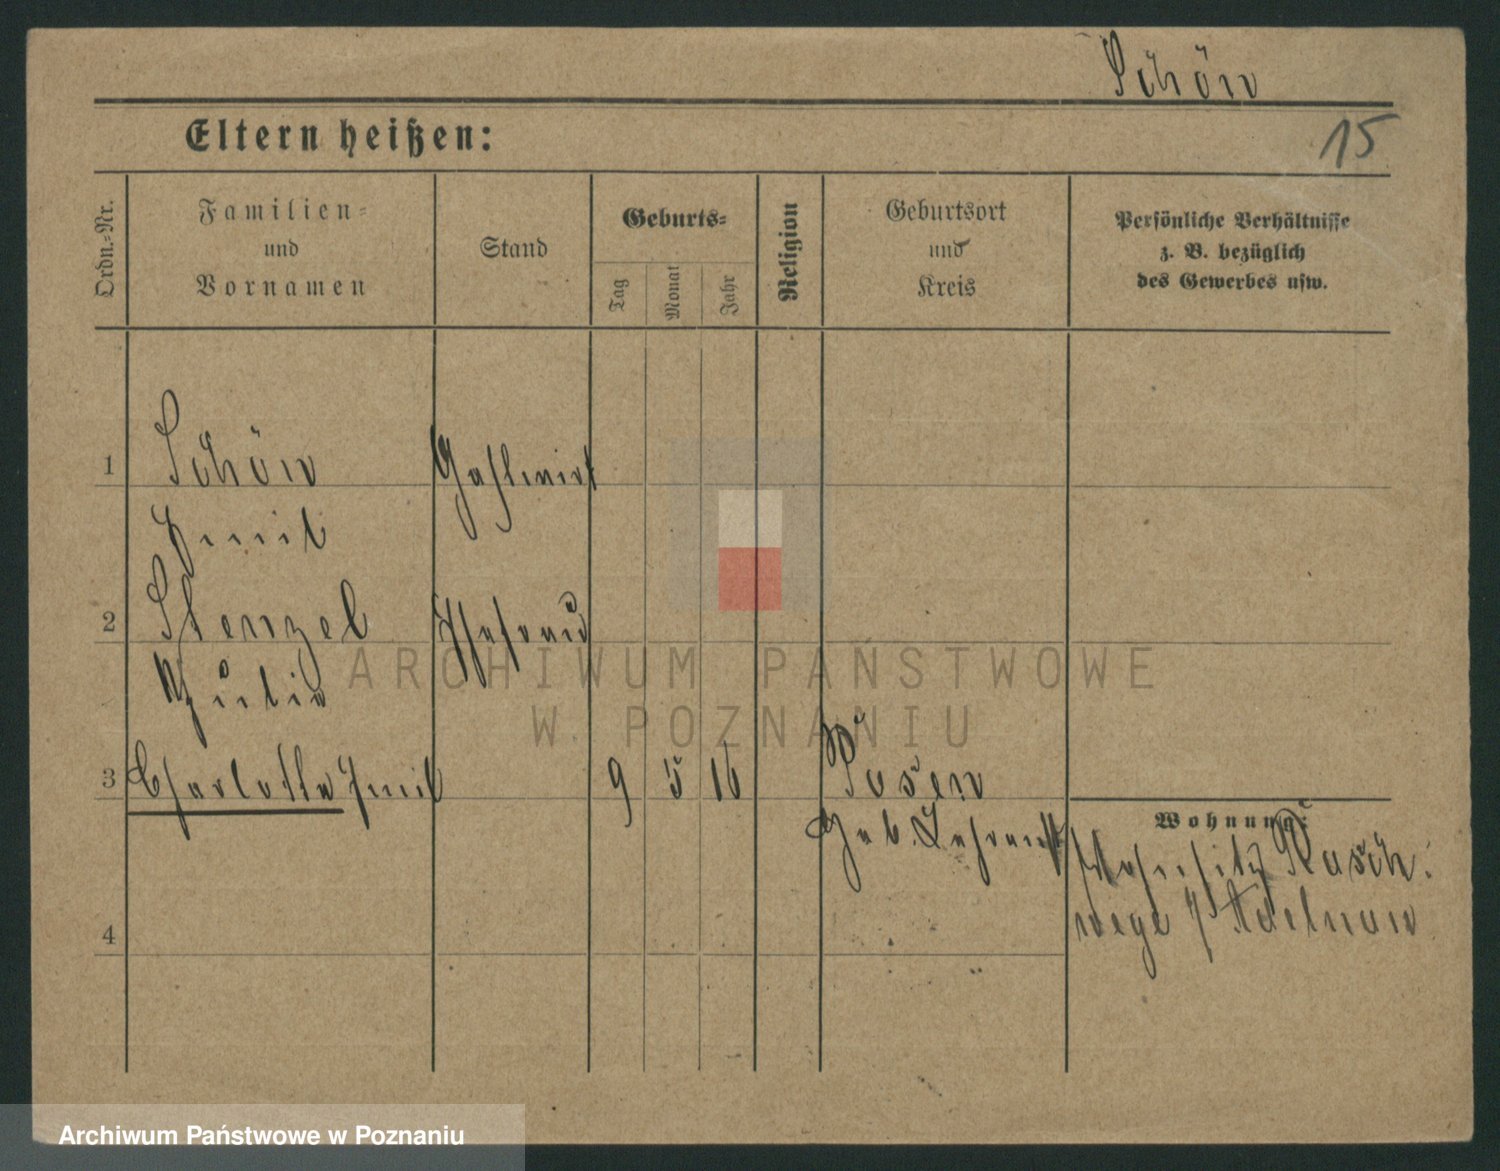 Schön
15
Eltern heißen:
Ordn.-Nr.
Familien-
und
Vornamen
Stand
Geburts-
Tag
Monat
Jahr
Religion
Geburtsort
und
Kreis
Persönliche Verhältnisse
z. B. bezüglich
des Gewerbes usw.
1
Schön
Emil
Gastwirt
2
Stenzel
Julie
Ehefrau
3
Charlotte Emil
9 5 16
Posen
Geb.
Wohnung:
Rasch:
wege Adelnau
4
ARCHIWUM PAŃSTWOWE
W POZNANIU
Archiwum Państwowe w Poznaniu